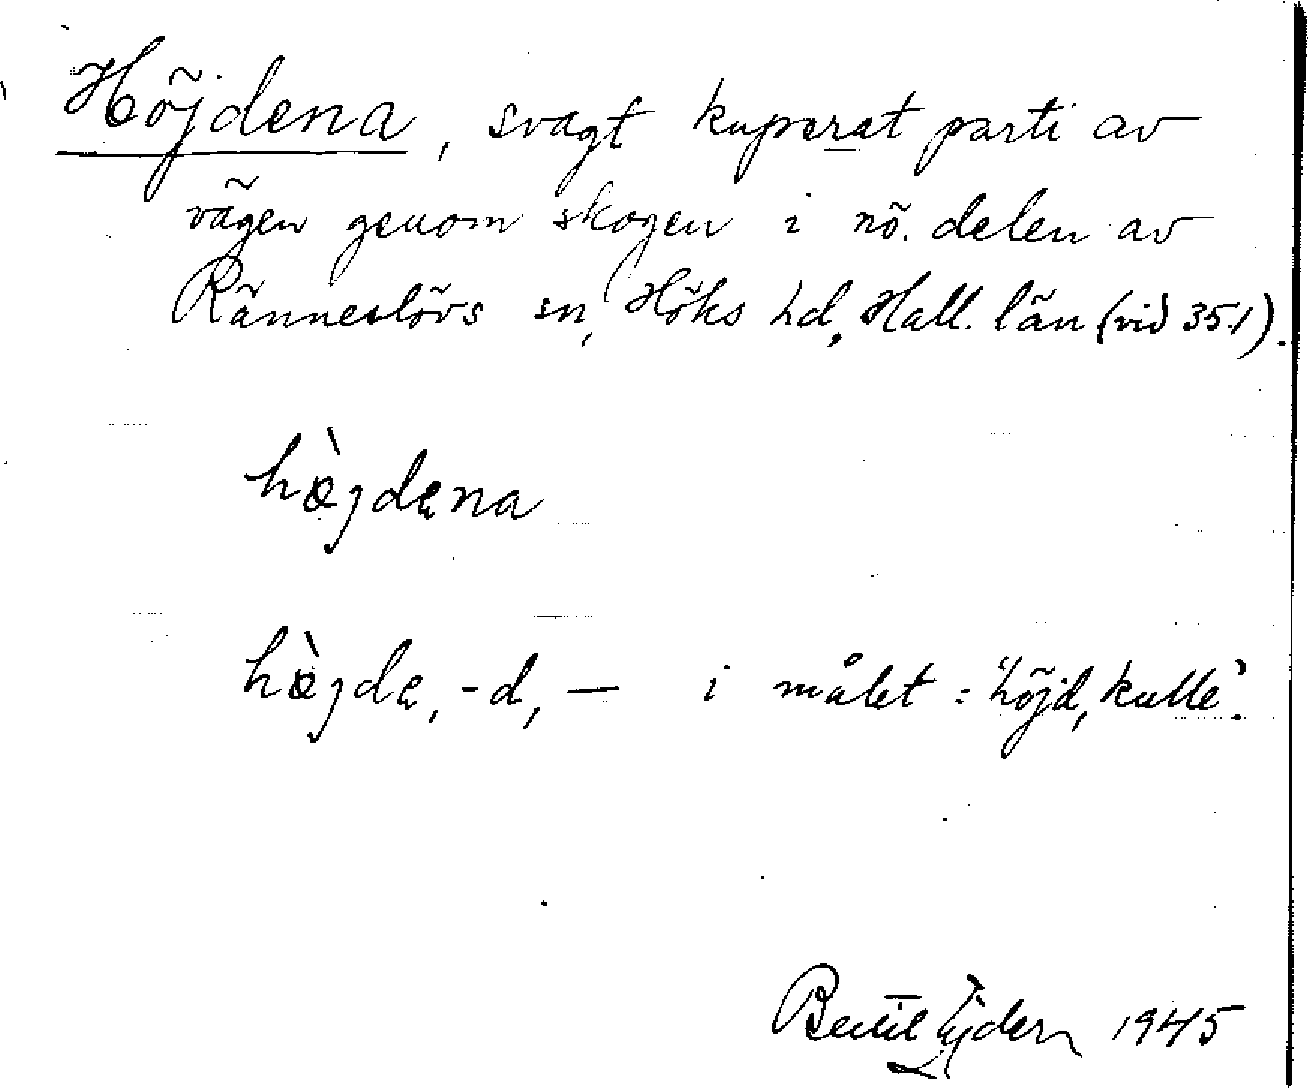 Höjdena, svagt kuperat parti av
vägen genom skogen i nö. delen av
Ränneslövs sn, Höks hd, Hall. län (vid 351).
hœ̀jdena
hœ̀jde, -d, — i målet = "höjd, kulle".
Bertil Ejder 1945